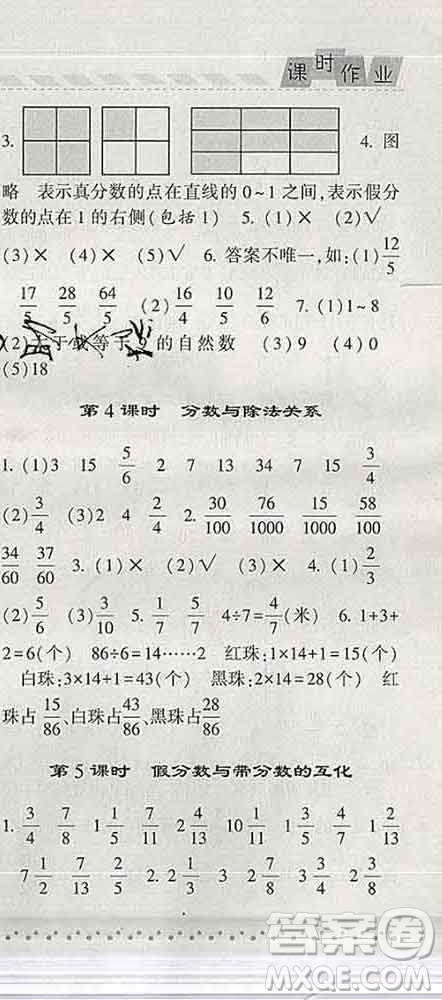 课时作业
3. 4. 图
略 表示真分数的点在直线的0~1之间,表示假分
数的点在1的右侧(包括1) 5. (1)× (2)√
(3)× (4)× (5)√ 6. 答案不唯一,如:(1)12/5
17/5 28/5 64/5 (2)16/4 10/5 12/6 7. (1)1~8
(2)大于或等于9的自然数 (3)9 (4)0
(5)18
第4课时 分数与除法关系
1. (1)3 15 5/6 2 7 13 34 7 15 3/4
(2)3/4 (3)2 4 2/4 2. 30/100 76/1000 15/1000 58/100
34/60 37/60 3. (1)× (2)√ (3)× 4. (1)2/3
(2)5/6 (3)3/10 5. 1/7 5/7 4÷7=4/7(米) 6. 1+3+
2=6(个) 86÷6=14……2 红珠:1×14+1=15(个)
白珠:3×14+1=43(个) 黑珠:2×14=28(个) 红
珠占15/86、白珠占43/86、黑珠占28/86
第5课时 假分数与带分数的互化
1. 3/4 7/8 1 1/2 1 2/5 7/11 2 4/7 10 1/2 1 2/13
7 1/2 7/13 2/5 2. 2 1/3 3 2 3/4 2 3/8
答案圈
MXQE.COM